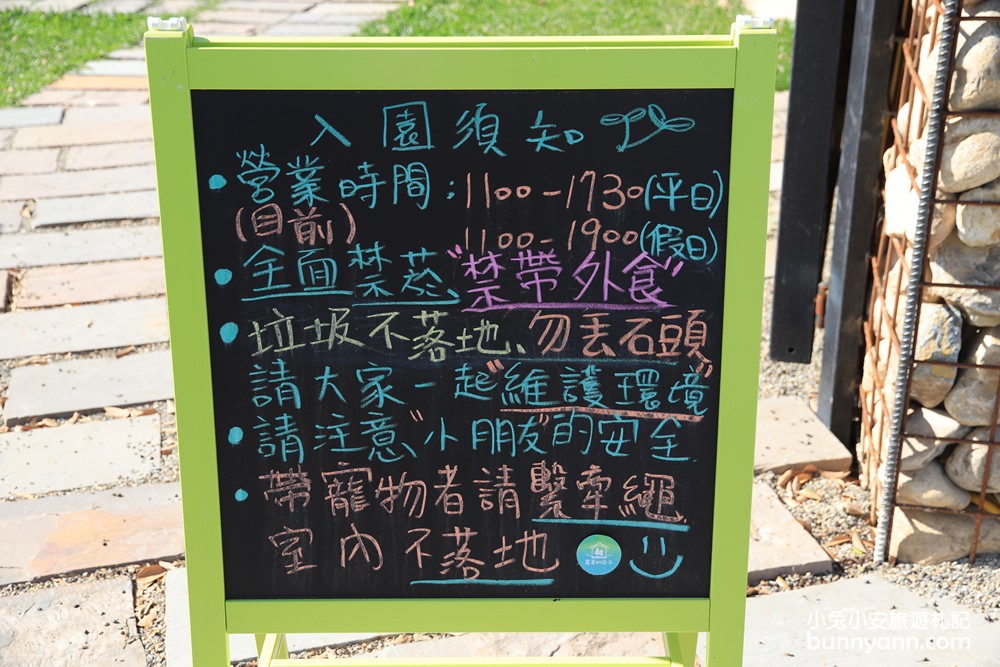 入園須知
• 營業時間：1100-1730(平日)
(目前) 1100-1900(假日)
• 全面禁菸、"禁帶外食"
• 垃圾不落地、勿丟石頭
請大家一起"維護環境"
• 請注意"小朋友"的安全
• 帶寵物者請繫牽繩
室內不落地
小兔小安旅遊札記
bunnyann.com